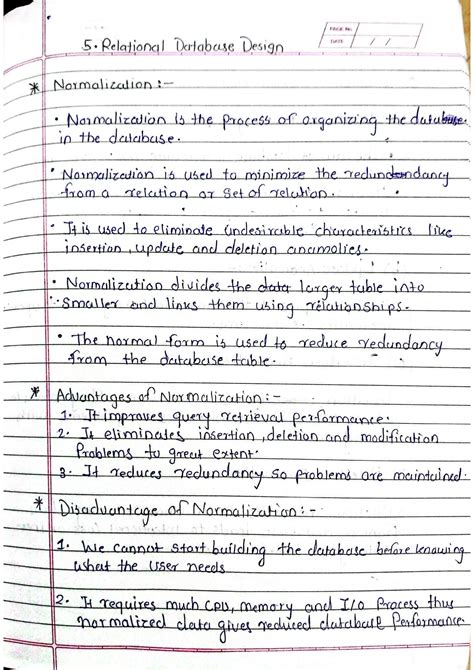 PAGE No.
DATE / /
5. Relational Database Design
* Normalization :-
• Normalization is the process of organizing the database.
in the database.
• Normalization is used to minimize the redundandancy
from a relation or set of relation.
• It is used to eliminate undesirable characteristics like
insertion, update and deletion anamolies.
• Normalization divides the data larger table into
smaller and links them using relationships.
• The normal form is used to reduce redundancy
from the database table.
* Advantages of Normalization :-
1. It improves query retrieval performance.
2. It eliminates insertion, deletion and modification
Problems to great extent.
3. It reduces redundancy so problems are maintained.
* Disadvantage of Normalization :-
1. We cannot start building the database before knowing
what the user needs
2. It requires much CPU, memory and I/O Process thus
normalized data gives reduced database Performance.